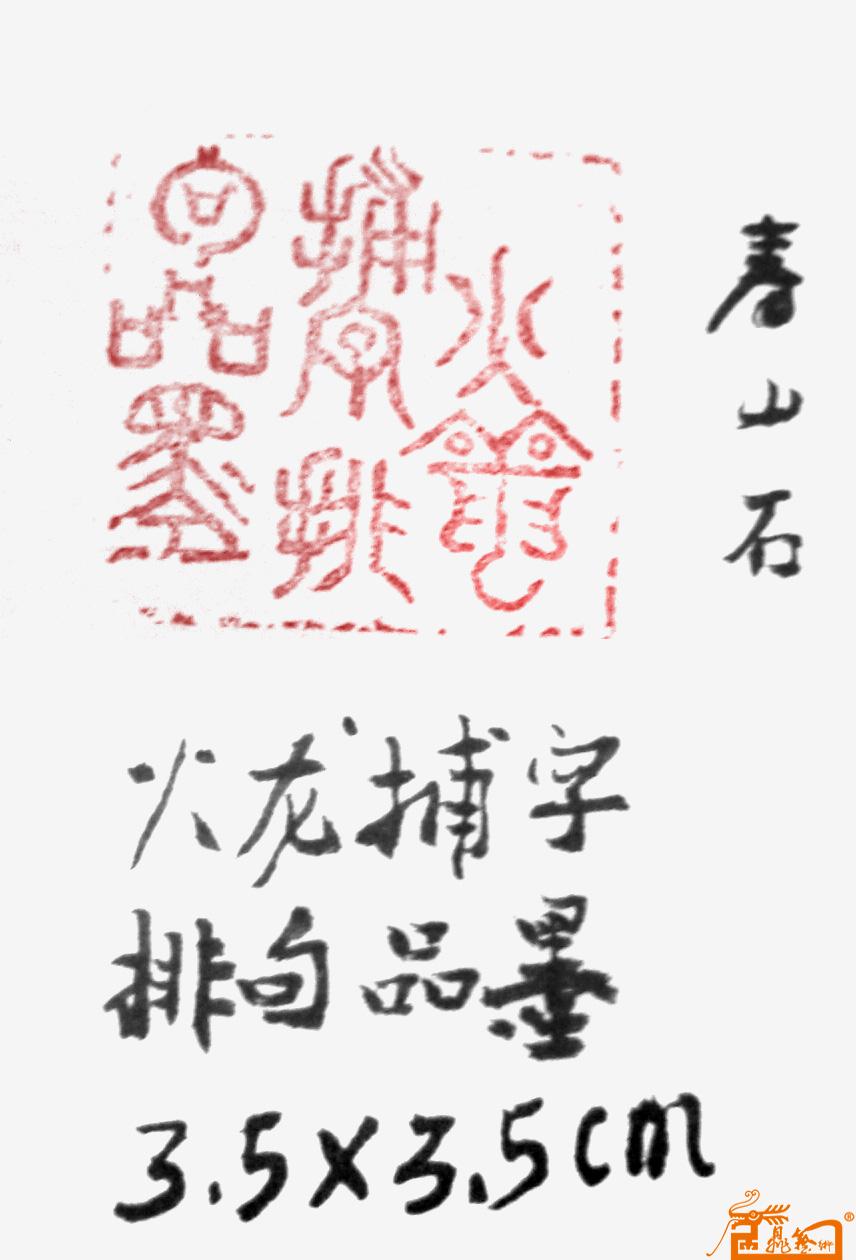 寿山石
火龙捕字
排句品墨
3.5×3.5cm